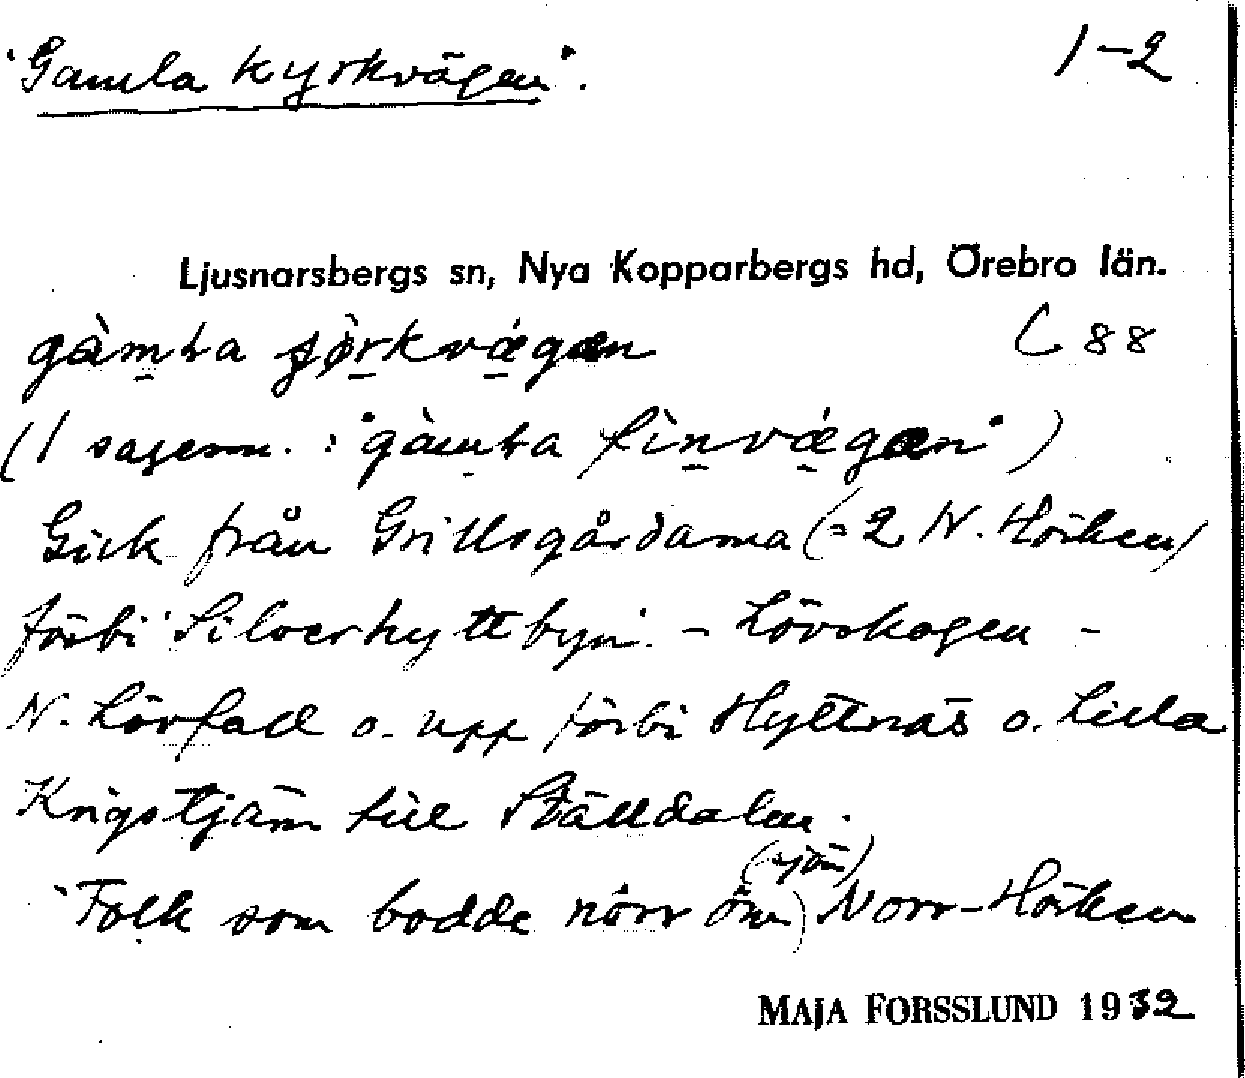 "Gamla kyrkvägen".
1-2
Ljusnarsbergs sn, Nya Kopparbergs hd, Örebro län.
gàmta kvǽgæn
L 88
(1 sagesm. : "gàmta fìnvǽgæn")
Gick från Grillsgårdarna (= 2 N. Hörken)
förbi Silverhyttbyn - Lövskogen -
N. Lövfall o. upp förbi Hyttnäs o. Lilla
Krigstjärn till Ställdalen.
(sjön)
"Folk som bodde norr om Norr-Hörken
MAJA FORSSLUND 1932